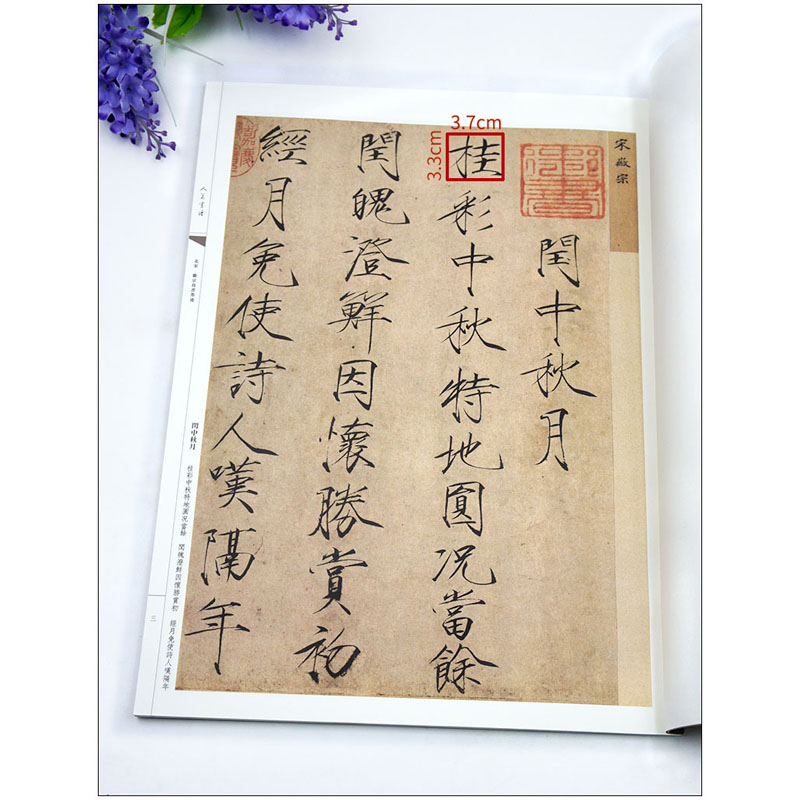 3.7cm
3.3cm
宋徽宗
御書
閏中秋月
桂彩中秋特地圓況當餘
閏魄澄鮮因懷勝賞初
經月免使詩人嘆隔年
人美書譜
閏中秋月
桂彩中秋特地圓況當餘 閏魄澄鮮因懷勝賞初 經月免使詩人嘆隔年
三